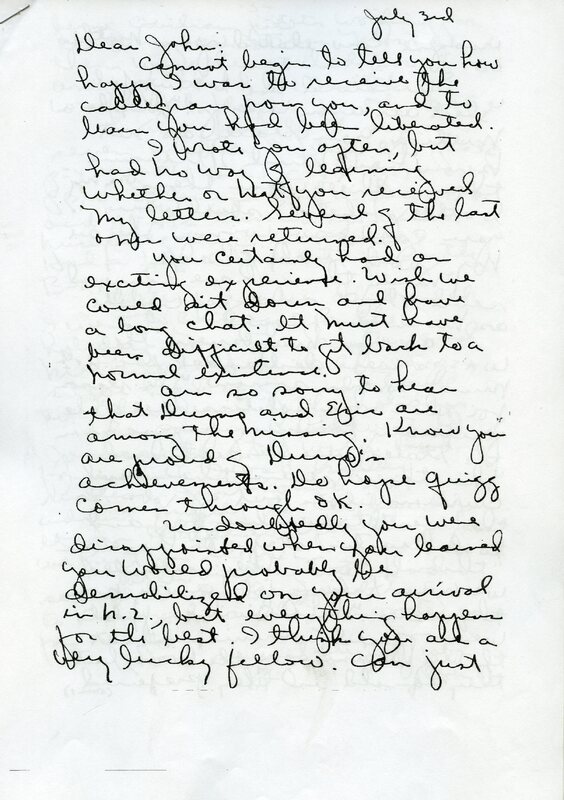 July 3rd
Dear John:
Cannot begin to tell you how
happy I was to receive the
cablegram from you, and to
learn you had been liberated.
I wrote you often, but
had no way of learning
whether or not you received
my letters. Several of the last
ones were returned.
You certainly had an
exciting experience. Wish we
could sit down and have
a long chat. It must have
been difficult to get back to a
normal existence.
Am so sorry to hear
that Dump and are
among the missing. Know you
are proud of Dump's
achievements. Do hope Quigg
comes through OK.
Undoubtedly you were
disappointed when you learned
you would probably be
demobilized on your arrival
in N.Z., but everything happens
for the best. I think you are a
very lucky fellow. Can just